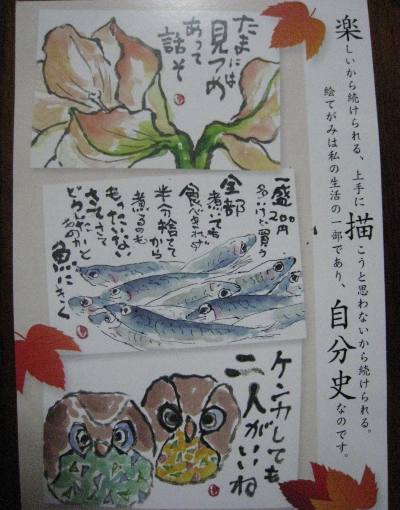 楽しいから続けられる、上手に描こうと思わないから続けられる。
絵てがみは私の生活の一部であり、自分史なのです。
たまには
見つめ
あって
話そ
一盛200円
多いけど買う
全部
煮ても
食べきれず
半分捨ててから
煮るのも
もったいない
さてさて
どうしたものか
魚にきく
ケンカしても
二人がいいね